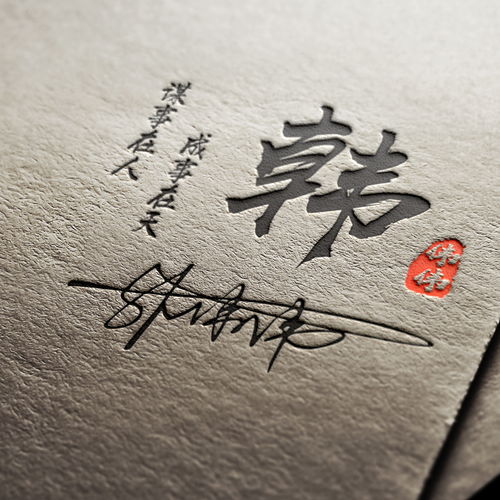 谋事在人
成事在天
韩
伟伟